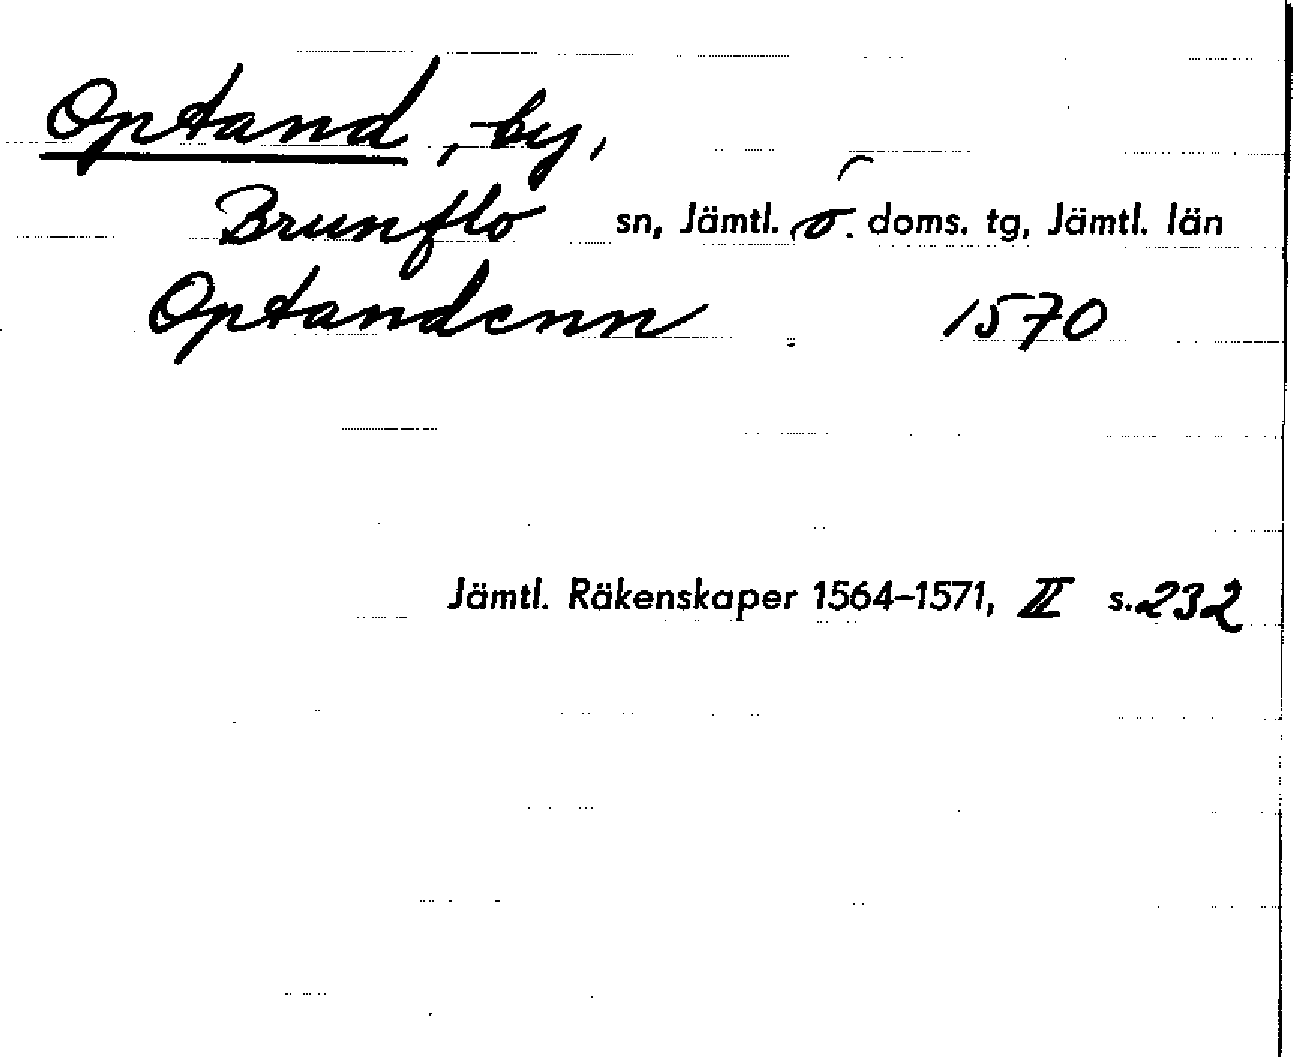 Optand, by,
Brunflo sn, Jämtl. ö. doms. tg, Jämtl. län
Optandenn 1570
Jämtl. Räkenskaper 1564–1571, II s. 232